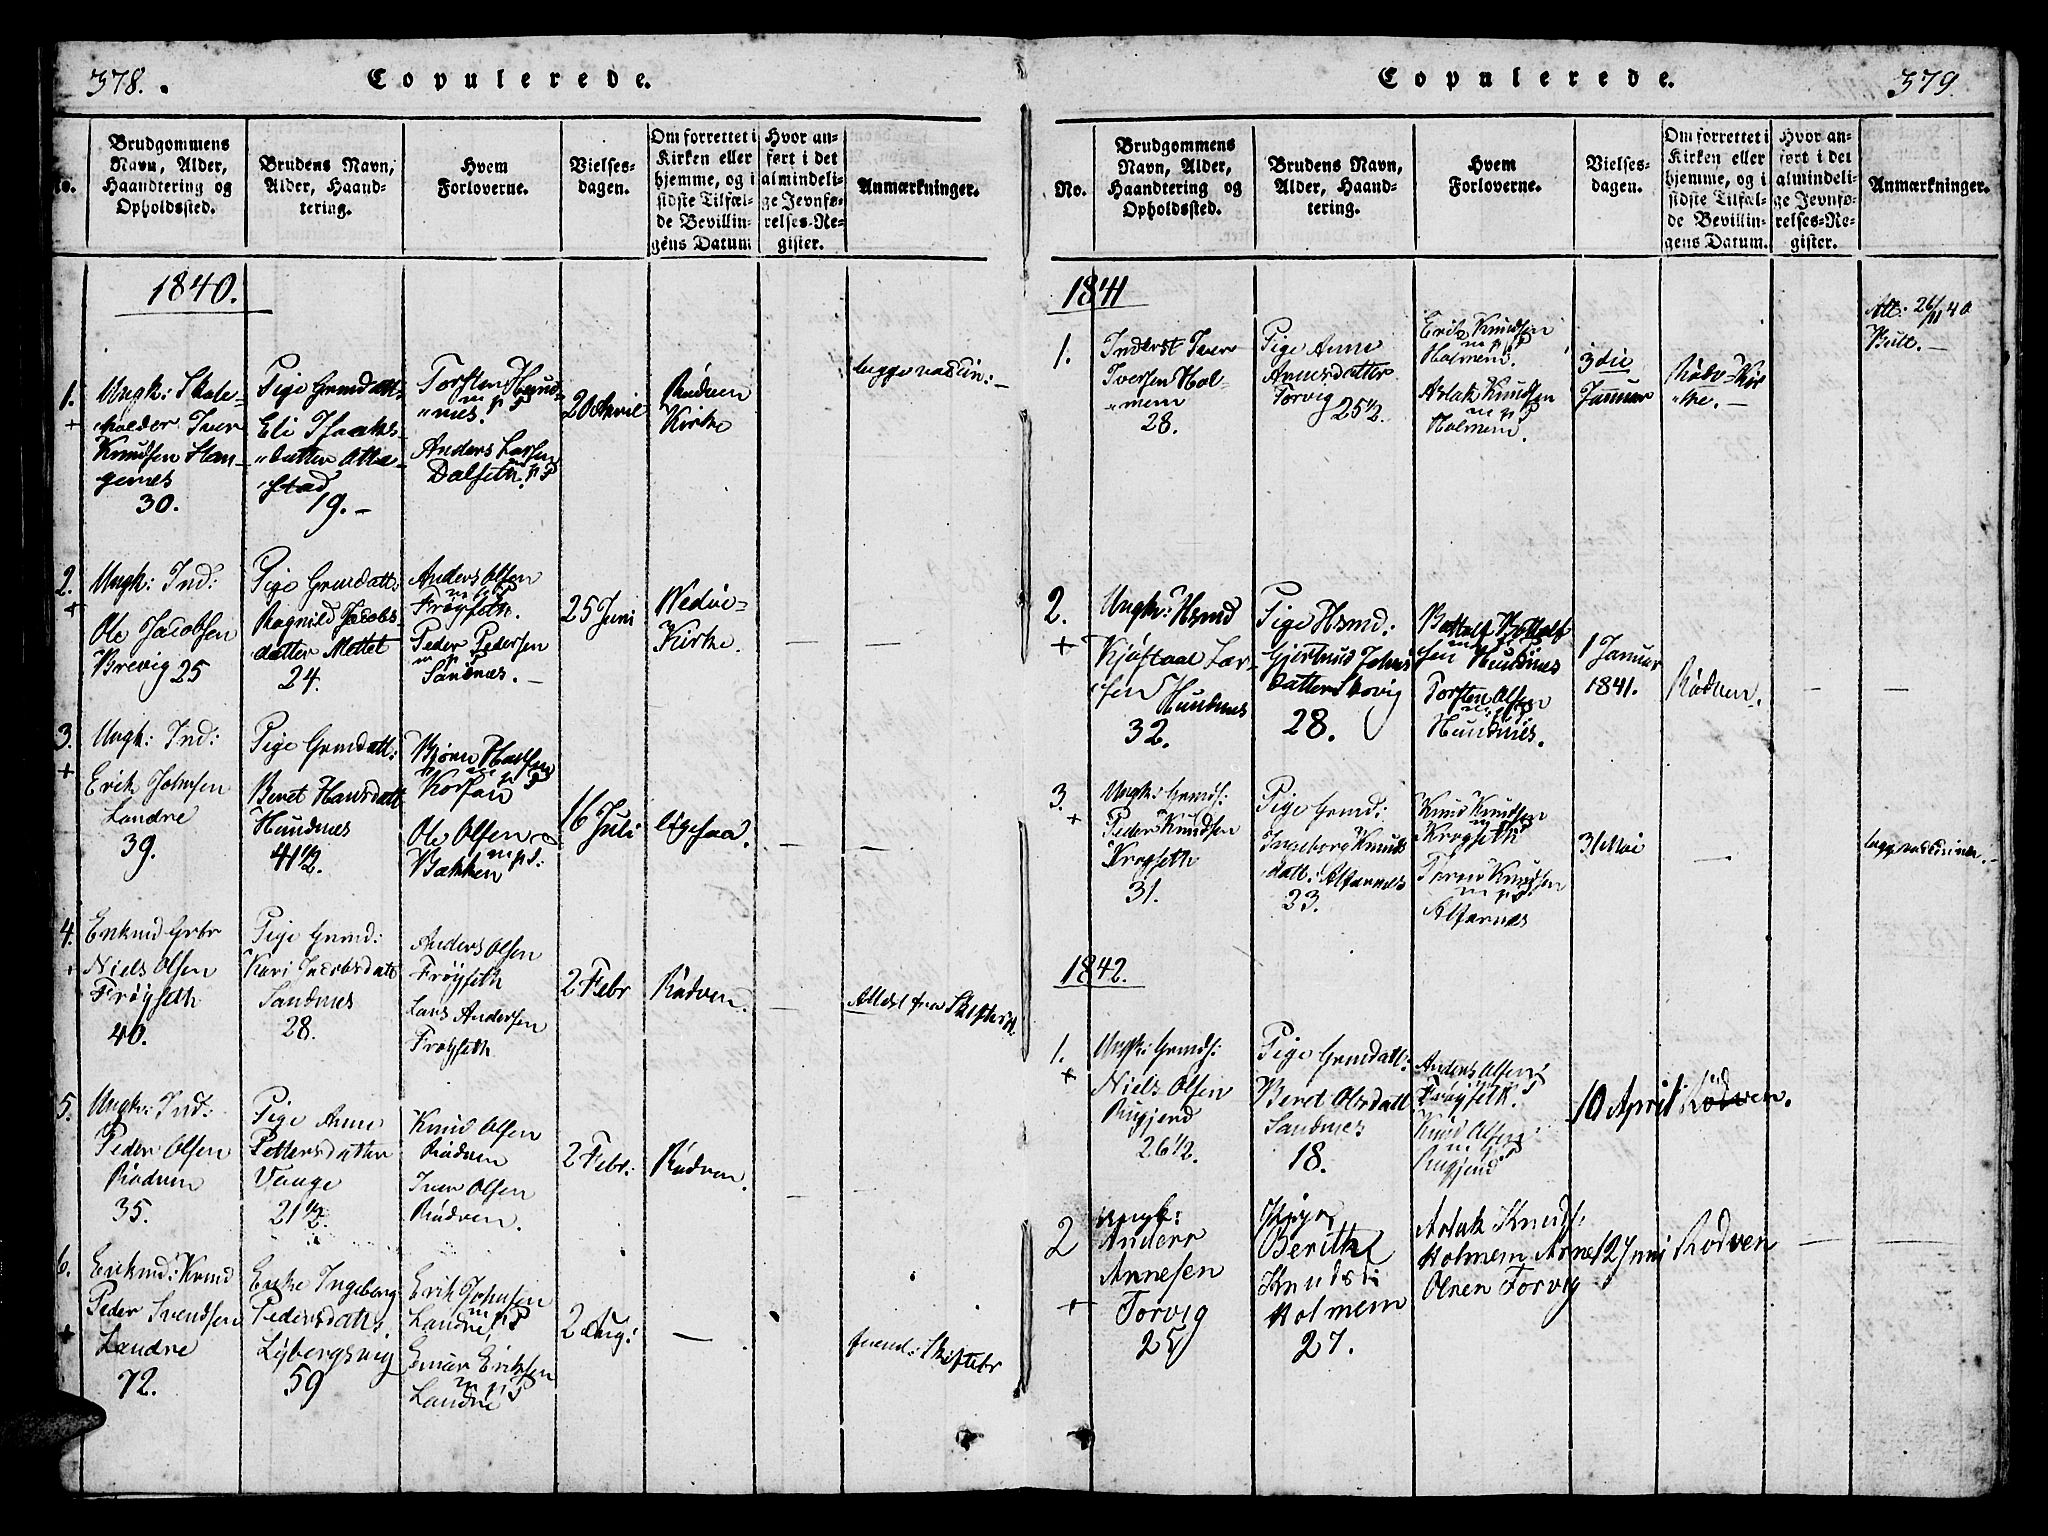 378.
Copulerede.
No.
Brudgommens
Navn, Alder,
Haandtering og
Opholdssted.
Brudens Navn,
Alder, Haand-
tering.
Hvem
Forloverne.
Vielses-
dagen.
Om forrettet i
Kirken eller
hjemme, og i
sidste Tilfæl-
de Bevillin-
gens Datum
Hvor an-
ført i det
almindeli-
ge Jevnfø-
relses-Re-
gister.
Anmærkninger.
1840.
1.
+
Ungk: Skole-
holder Iver
Knudsen Hau-
genes
30.
Pige Grmdatt:
Eli Isaaks-
datter
stad
19.-
Torsten Hund-
nes.
Anders Larsen
Dalseth.
20 April
Rødven
Kirke
2.
+
Ungk: Ind:
Ole Jacobsen
Brevig 25
Pige Grmdatt:
Ragnild Jacobs
datter Mettet
24.
Anders Olsen
Frøyseth.
Peder Pedersen
Sandnes.-
25 Juni
Wedøe-
Kirke.
3.
+
Ungk: Ind:
Erik Johnsen
Landre
39.
Pige Grmdatt:
Beret Hansdatt
Hundnes
41 1/2.
Korsan
Ole Olsen
Bakken
16 Juli
ligesaa.
4.
Enkmd Grbr
Niels Olsen
Frøyseth
40.
Pige Grmd:
Kari Jacobsdatt
Sandnes
28.
Anders Olsen
Frøyseth
Lars Andersen
Frøyseth
2 Febr
Rødven.
Attest fra
5.
Ungk: Ind:
Peder Olsen
Rødven
35.
Pige Anne
Pettersdatter
Vange
21 1/2.
Knud Olsen
Rødven
Iver Olsen
Rødven.
2 Febr:
Rødven.
6.
+
Enkmd:
Peder Svendsen
Landre
72.
Enke Ingeborg
Pedersdatt:
Lybergsvig
59
Erik Johnsen
Landre,
Einar Eriksen
Landre
2 Aug:
379.
Copulerede.
No.
Brudgommens
Navn, Alder,
Haandtering og
Opholdssted.
Brudens Navn,
Alder, Haand-
tering.
Hvem
Forloverne.
Vielses-
dagen.
Om forrettet i
Kirken eller
hjemme, og i
sidste Tilfæl-
de Bevillin-
gens Datum.
Hvor an-
ført i det
almindeli-
ge Jevnfø-
relses-Re-
gister.
Anmærkninger.
1841
1.
Inderst Iver
Iversen Hol-
mem
28.
Pige Anne
Arnesdatter
Torvig
25 1/2.
Erik Knudsen
Holmem.
Aslak Knudsen
Holmem.
3die
Januar
Rødv: Kir
ke.-
Att: 26/11 40
2.
+
Ungk: Hsmd
Kjøstaal Lar-
sen Hundnes
32.
Pige Hsmd:
Gjertrud Johns
datter Skovig
28.
sen Hundnes
Torsten Olsen
Hundnes.
1 Januar
1841.
Rødven.
3.
+
Ungk: Grmds:
Peder Knudsen
Krogseth
31.
Pige Grmd:
Ingeborg Knuds
datt: Alfarnes
23.
Knud Knudsen
Krogseth
Knudsen
Alfarnes
31 Mai
1842.
1.
+
Ungk: Grmds:
Niels Olsen
Rugjerd
26 1/2.
Pige Grmdatt:
Beret Olsdatt
Sandnes
18.
Anders Olsen
Frøyseth.
Knud Olsen
Rugjerd
10 April
Rødven.
2
+
Ungk:
Anders
Arnesen
Torvig
25
Pige
Berith
Knudsd:
Holmem
27.
Aslak Knuds:
Holmem Arne
Olsen Torvig
12 Juni
Rødven